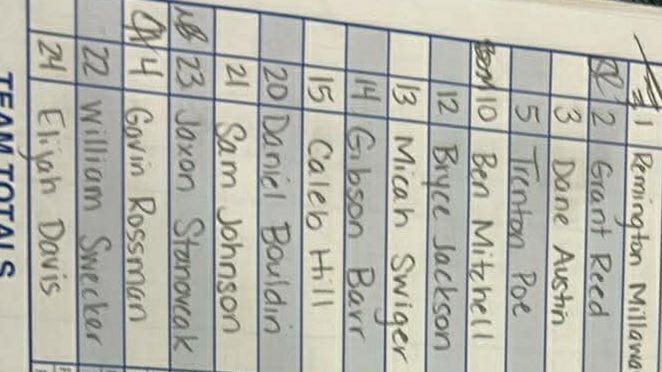 1 Remington Millawa
2 Grant Reed
3 Dane Austin
5 Trenton Poe
10 Ben Mitchell
12 Bryce Jackson
13 Micah Swiger
14 Gibson Barr
15 Caleb Hill
20 Daniel Bouldin
21 Sam Johnson
23 Jaxon Stanovcak
4 Gavin Rossman
22 William Swecker
24 Elijah Davis
TEAM TOTALS